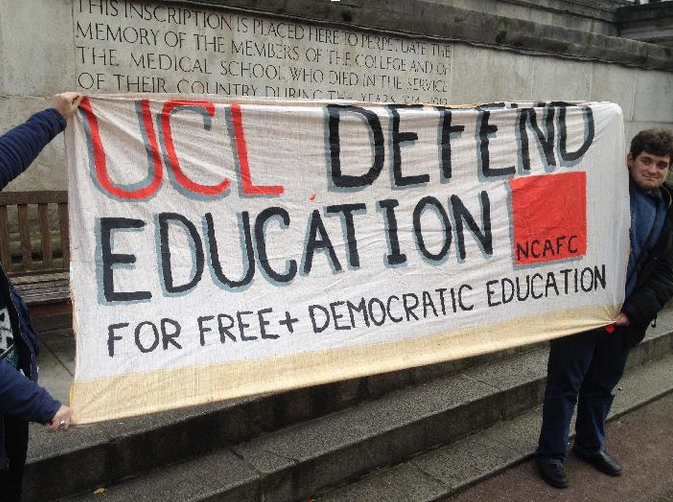 THIS INSCRIPTION IS PLACED HERE TO PERPETUATE THE
MEMORY OF THE MEMBERS OF THE COLLEGE AND OF
THE MEDICAL SCHOOL WHO DIED IN THE SERVICE
OF THEIR COUNTRY DURING THE YEARS 1914-1919
UCL DEFEND
EDUCATION
NCAFC
FOR FREE+ DEMOCRATIC EDUCATION